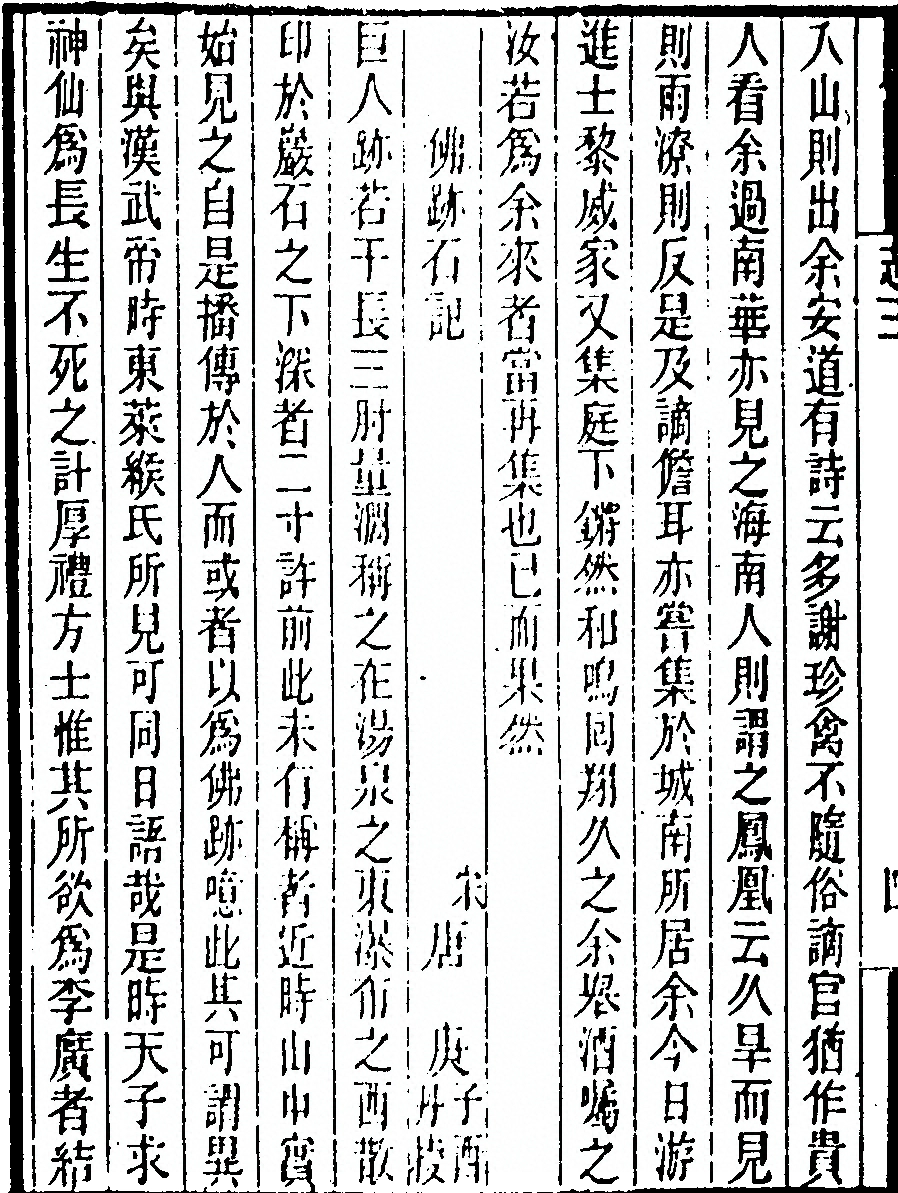 入山則出余安道有詩云多謝珍禽不隨俗謫官猶作貴
人看余過南華亦見之海南人則謂之鳳凰云久旱而見
則雨潦則反是及謫儋耳亦嘗集於城南所居余今日游
進士黎威家又集庭下鏘然和鳴回翔久之余舉酒囑之
汝若為余來者當再集也已而果然
佛跡石記 宋唐 庚子酉
巨人跡若干長三肘量濶稱之在湯泉之東瀑布之西散
印於巖石之下深者二寸許前此未有稱者近時山中賓
始見之自是播傳於人而或者以為佛跡噫此其可謂異
矣與漢武帝時東萊緱氏所見可同日語哉是時天子求
神仙為長生不死之計厚禮方士惟其所欲為李廣者結